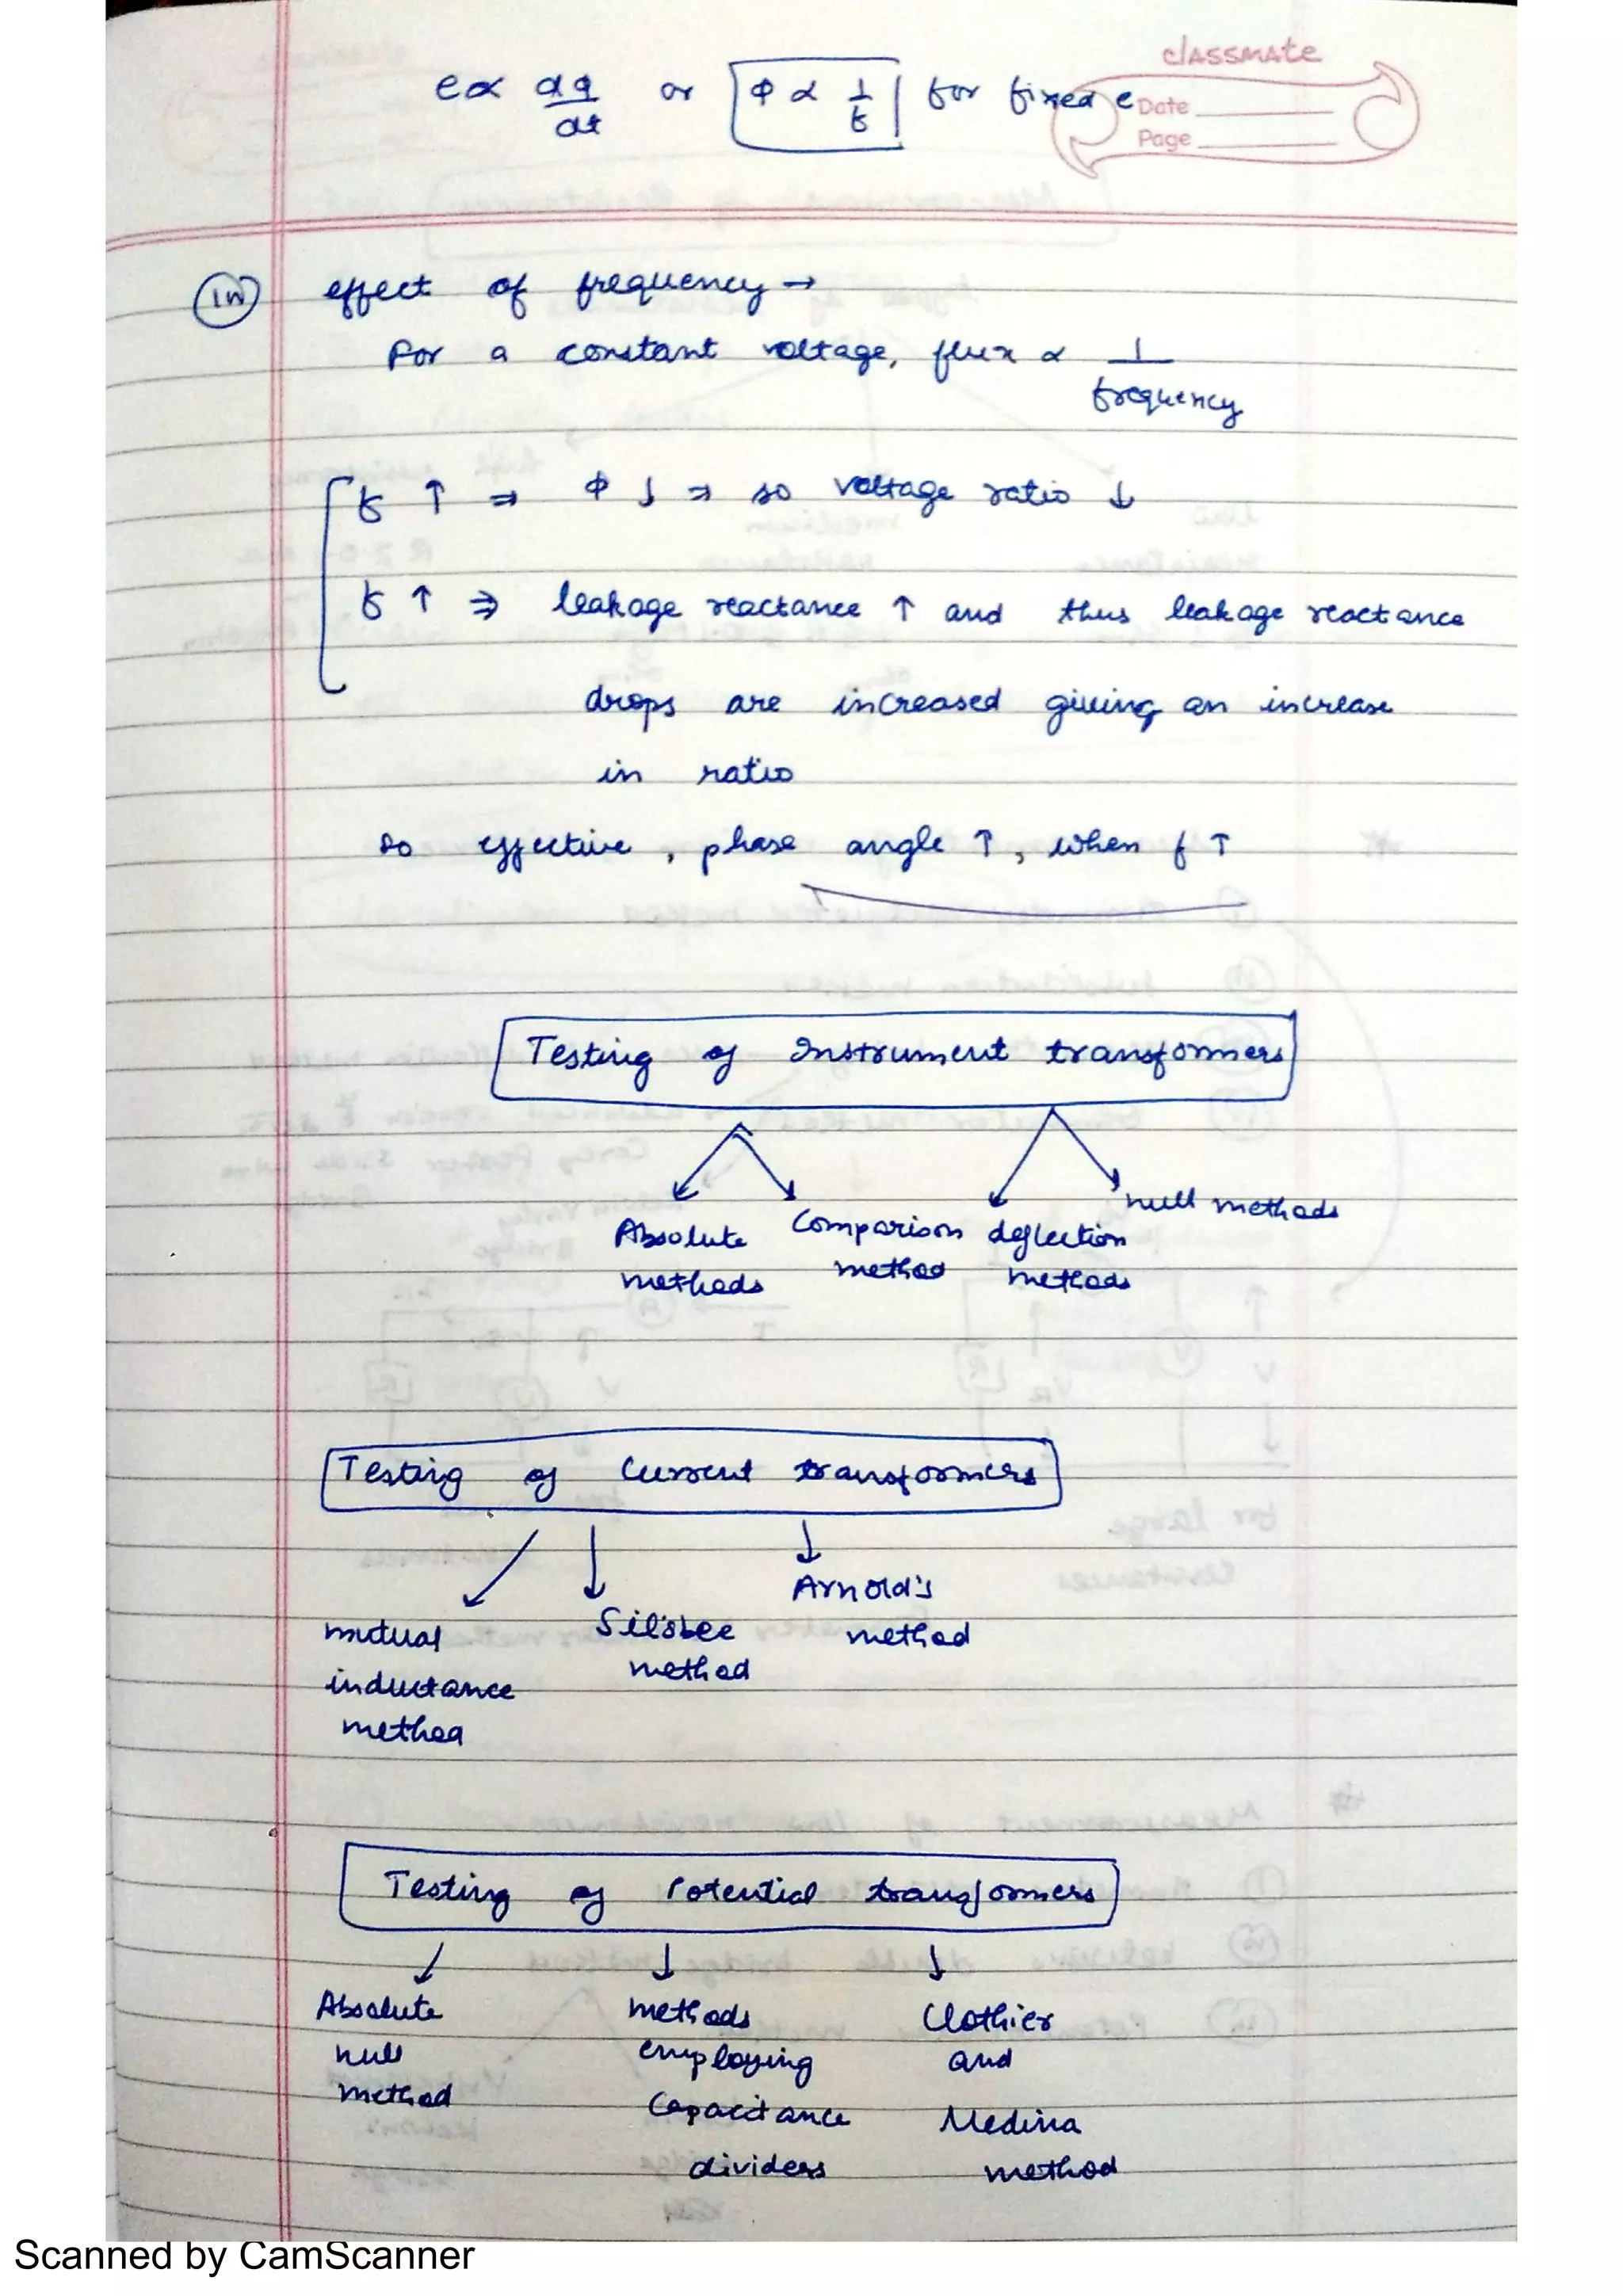 classmate
Date
Page
e ∝ dφ/dt or φ ∝ 1/f for fixed e
(iv) effect of frequency →
For a constant voltage, flux ∝ 1/frequency
f ↑ ⇒ φ ↓ ⇒ so voltage ratio ↓
f ↑ ⇒ leakage reactance ↑ and thus leakage reactance
drops are increased giving an increase
in ratio
so effective, phase angle ↑, when f ↑
Testing of Instrument transformers
Absolute methods
Comparison method
deflection methods
null methods
Testing of Current transformers
mutual inductance method
Silsbee method
Arnold's method
Testing of Potential transformers
Absolute null method
methods employing Capacitance dividers
Clothier and Medina method
Scanned by CamScanner